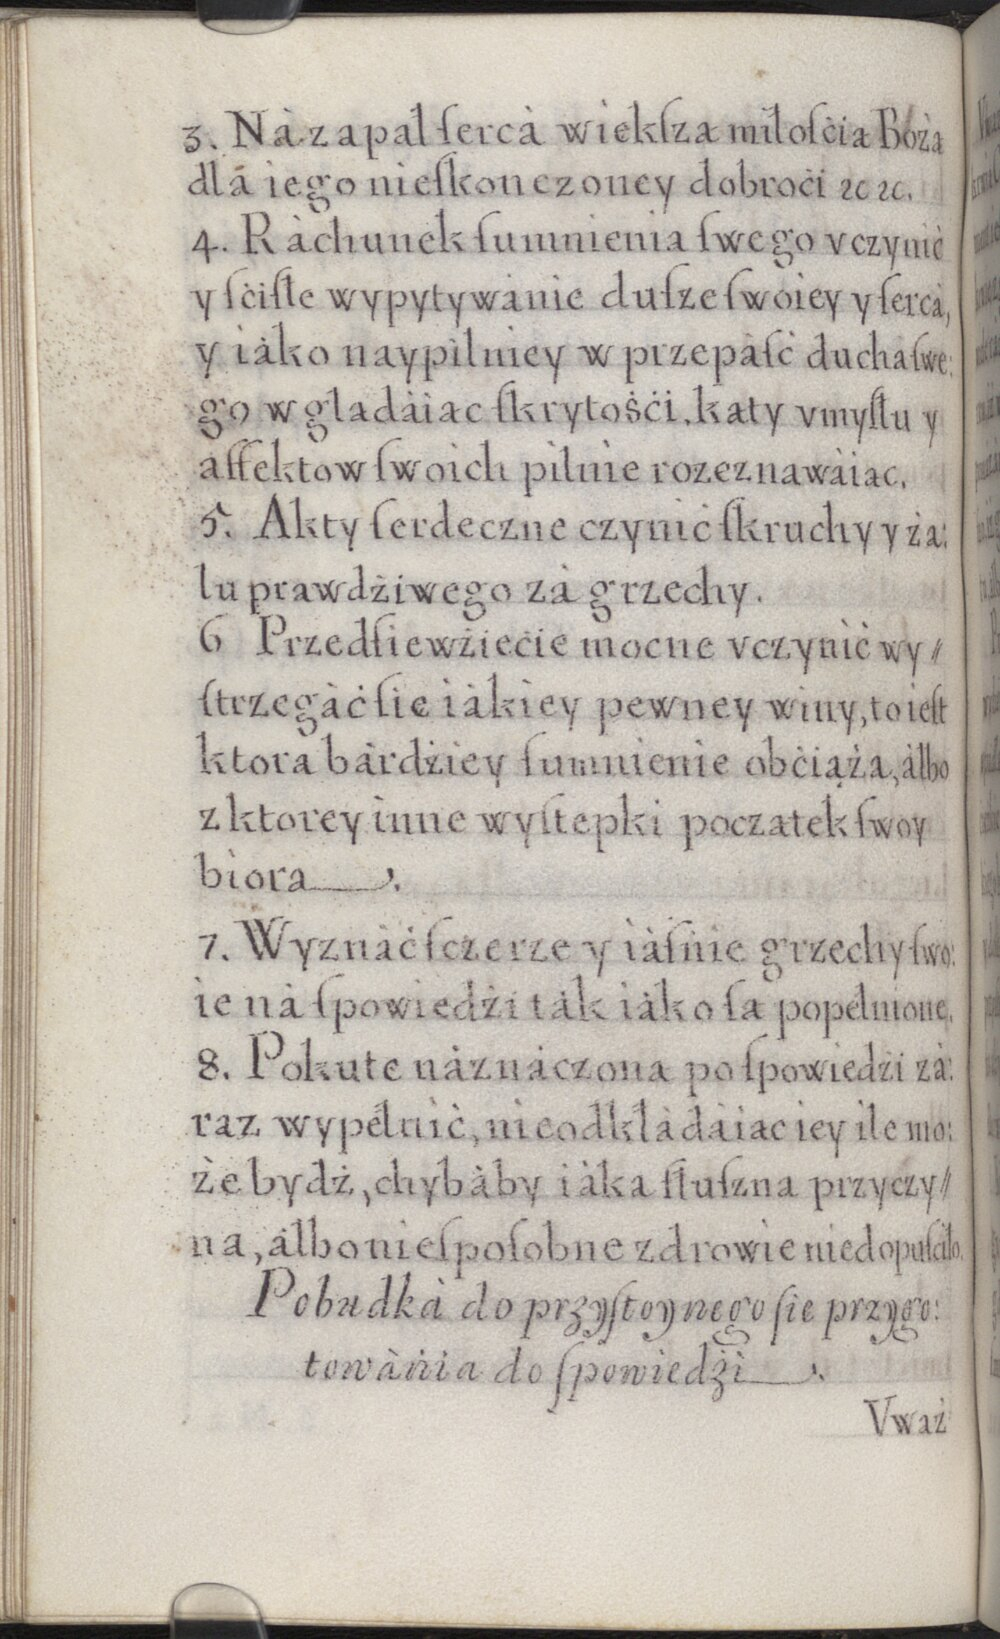 3. Nà zapał ſercà wiekſza miłoſċia Boża
dla iego nieſkonczoney dobroċi ꝛc ꝛc.
4. Ràchunek ſumnienia ſwego vczyniċ
y ſċiſłe wypytywànie duſze ſwoiey y ſercà,
y iàko naypilniey w przepàſċ ducha ſwe:
go wglàdàiac ſkrytoṡċi, katy vmyſłu y
affektow ſwoich pilnie rozeznawàiac.
5. Akty ſerdeczne czyniċ ſkruchy y ża:
lu prawdżiwego zà grzechy.
6 Przedſiewżieċie mocne vczyniċ wy⸗
ſtrzegàċ ſie iàkiey pewney winy, to ieſt
ktora bàrdżiey ſumnienie obċiąża, àlbo
z ktorey inne wyſtepki początek ſwoy
biora.
7. Wyznàċ ſczerze y iàſnie grzechy ſwo:
ie nà ſpowiedżi tàk iàko ſa popełnione.
8. Pokute nàznàczona po ſpowiedżi zà:
raz wypełniċ, nieodkłàdàiac iey ile mo:
że bydż, chybàby iàka ſłuſzna przyczy⸗
na, àlbo nieſpoſobne zdrowie niedopuſciło.
Pobudkà do przyſtoynego ſie przygo:
towàṅia do ſpowiedżi.
Vważ